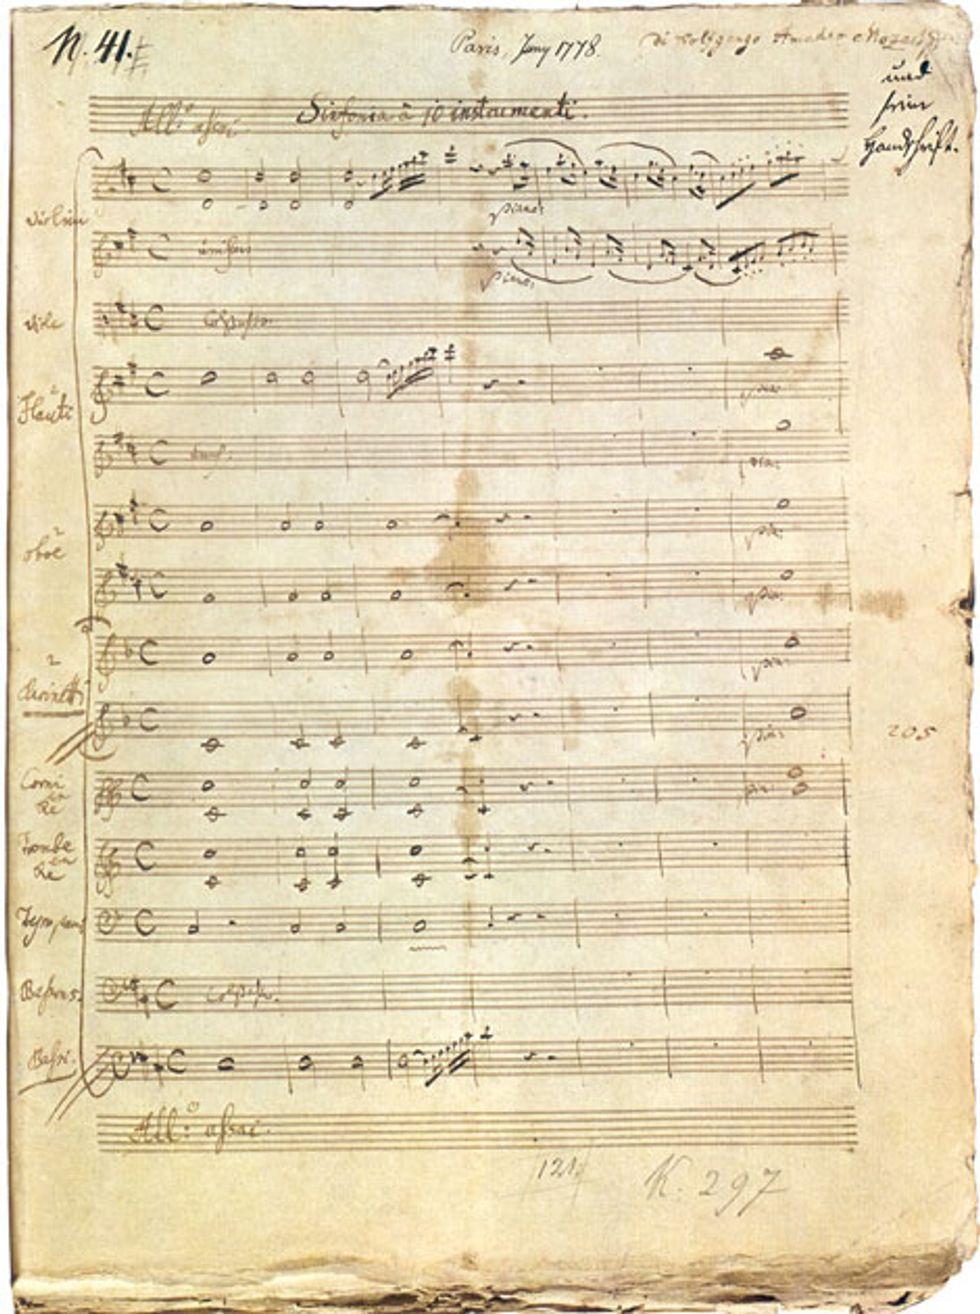 N. 41.
Paris, Juny 1778.
di Wolfgango Amadeo Mozart
und
seine
Handschrift.
All:º assai.
Sinfonia à 10 instrumenti.
Violini
piano:
unisoni
piano:
Viole
Col Basso.
2
Flauti
pia:
unis:
pia:
2
oboe
pia:
pia:
2
Clarinetti
pia:
pia:
205
Corni
in
Re
pia:
Trombe
in
Re
Tympani
Bassons
Col Basso.
Bassi.
All:º assai.
121
K. 297